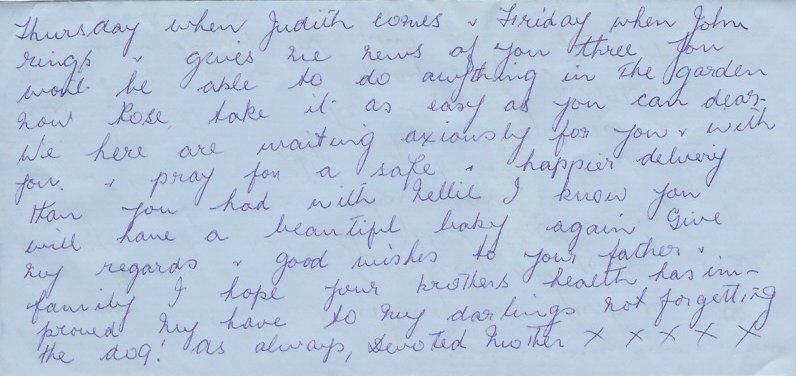 Thursday when Judith comes & Friday when John
rings & gives me news of you three You
wont be able to do anything in the garden
now Rose, take it as easy as you can dear-
We here are waiting axiously for you & with
you. & pray for a safe & happier delivery
than you had with Nellie I know you
will have a beautiful baby again Give
my regards & good wishes to your father &
family I hope your brothers health has im-
proved My have to my darlings not forgetting
the dog! as always, Devoted Mother X X X X X